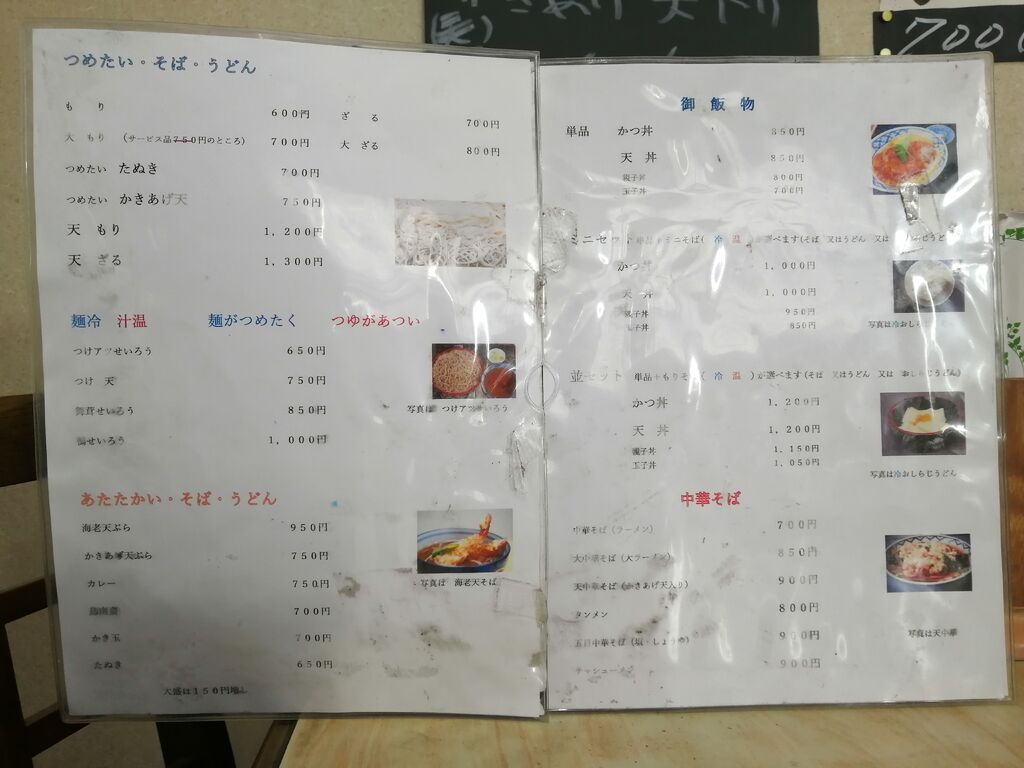 かきあげ天
700
つめたい・そば・うどん
もり 600円 ざる 700円
大もり (サービス品750円のところ) 700円 大ざる 800円
つめたい たぬき 700円
つめたい かきあげ天 750円
天もり 1,200円
天ざる 1,300円
麺冷 汁温 麺がつめたく つゆがあつい
つけアツせいろう 650円
つけ天 750円
舞茸せいろう 850円
鴨せいろう 1,000円
写真は つけアツせいろう
あたたかい・そば・うどん
海老天ぷら 950円
かきあげ天ぷら 750円
カレー 750円
700円
かき玉 700円
たぬき 650円
写真は 海老天そば
大盛は150円増し
御飯物
単品 かつ丼 850円
天丼 850円
親子丼 800円
玉子丼 700円
ミニセット 単品+ミニそば( 冷 温 )が選べます(そば 又はうどん 又は
かつ丼 1,000円
天丼 1,000円
親子丼 950円
玉子丼 850円
写真は冷おしら
並セット 単品+もりそば( 冷 温 )が選べます(そば 又はうどん 又は おしらじうどん)
かつ丼 1,200円
天丼 1,200円
親子丼 1,150円
玉子丼 1,050円
写真は冷おしらじうどん
中華そば
中華そば(ラーメン) 700円
大中華そば(大ラーメン) 850円
天中華そば(かきあげ天入り) 900円
タンメン 800円
五目中華そば(塩・しょうゆ) 900円
チャシューメン 900円
写真は天中華